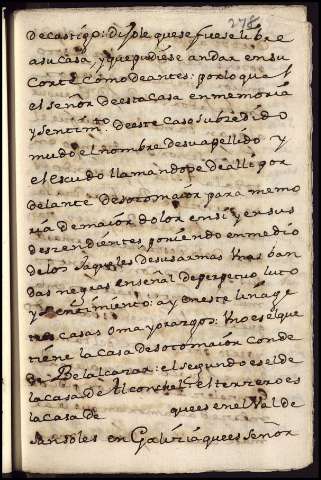 278
decastigo: dijole quese fuese libre
asu Casa, yque pudiese andar ensu
Corte como deantes: porlo qual
el señor deesta Casa en memoria
y sentim.to deeste Caso subcedido
mudo el nombre desu apellido y
el escudo llamandose de alli por
delante desotomaior para memo
ria demaior dolor ensi y en sus
descendientes poniendo en medio
delos Jaqueles desus armas Unas ban
das negras en señal de perpetuo luto
y sentimiento: ay en este linage
tres casas o mayorazgos: Uno es el que
tiene la Casa desotomaior conde
de Belalcazar: el segundo es el de
la casa de Alconchel: el terzero es
la casa de quees en el Val de
en Galiçia quees señor